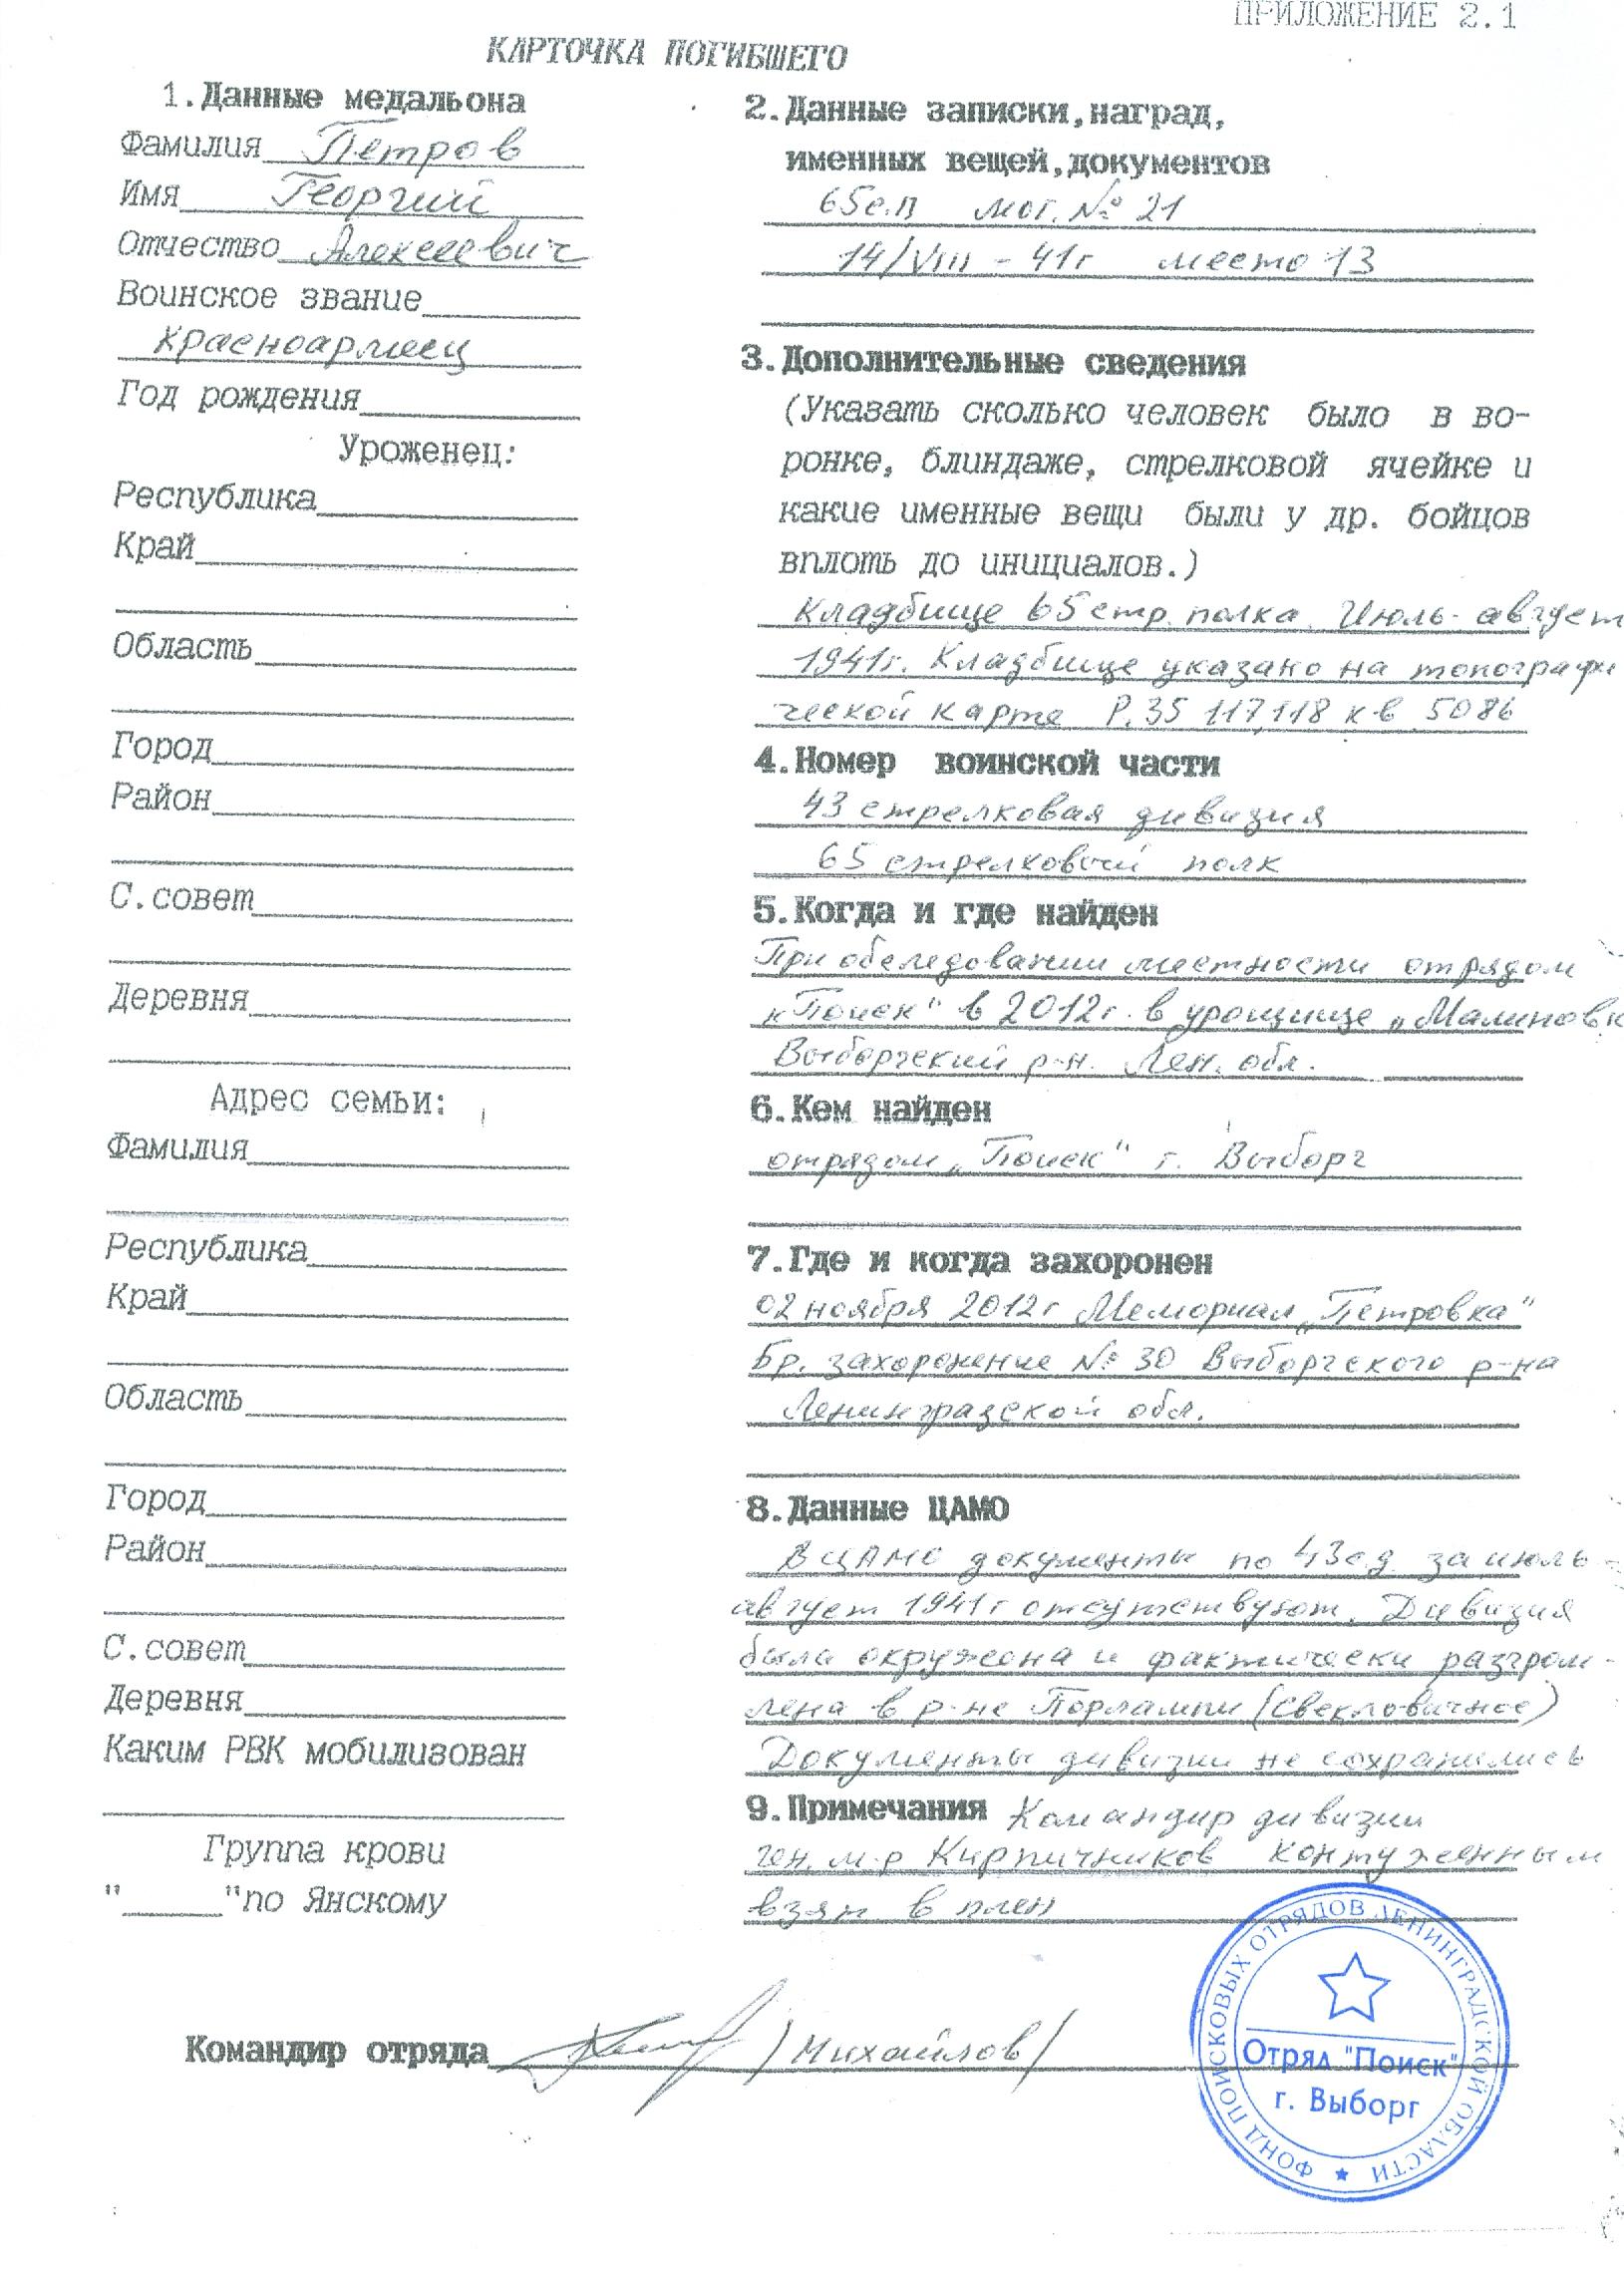 ПРИЛОЖЕНИЕ 2.1
КАРТОЧКА ПОГИБШЕГО
1.Данные медальона
Фамилия Петров
Имя Георгий
Отчество Алексеевич
Воинское звание
Красноармеец
Год рождения
Уроженец:
Республика
Край
Область
Город
Район
С.совет
Деревня
Адрес семьи:
Фамилия
Республика
Край
Область
Город
Район
С.совет
Деревня
Каким РВК мобилизован
Группа крови
"_____"по Янскому
2.Данные записки,наград,
именных вещей,документов
65с.п мог. № 21
14/VIII - 41г место 13
3.Дополнительные сведения
(Указать сколько человек было в во-
ронке, блиндаже, стрелковой ячейке и
какие именные вещи были у др. бойцов
вплоть до инициалов.)
Кладбище 65 стр. полка. Июль-август
1941г. Кладбище указано на топографи
ческой карте Р.35 117,118 кв 5086
4.Номер воинской части
43 стрелковая дивизия
65 стрелковый полк
5.Когда и где найден
При обследовании местности отрядом
"Поиск" в 2012г. в урочище „Малиновк
Выборгский р-н. Лен. обл.
6.Кем найден
отрядом „Поиск" г. Выборг
7.Где и когда захоронен
02 ноября 2012г Мемориал „Петровка"
Бр. захоронение № 30 Выборгского р-на
Ленинградской обл.
8.Данные ЦАМО
В ЦАМО документы по 43с.д за июль-
август 1941г отсутствуют. Дивизия
была окружена и фактически разгром-
лена в р-не Порлампи (Свекловичное)
Документы дивизии не сохранились
9.Примечания Командир дивизии
ген. м-р Кирпичников контуженным
взят в плен
Командир отряда /Михайлов/
ФОНД ПОИСКОВЫХ ОТРЯДОВ ЛЕНИНГРАДСКОЙ ОБЛАСТИ
Отряд "Поиск"
г. Выборг